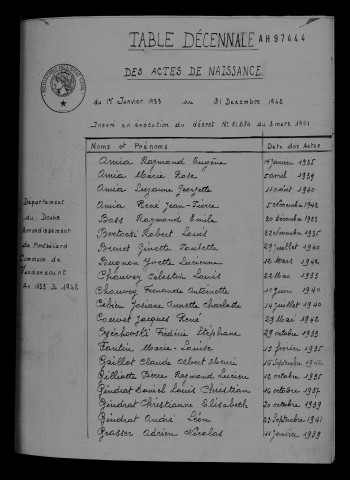 TABLE DÉCENNALE AH97444
DES ACTES DE NAISSANCE
du 1er Janvier 1933 au 31 Décembre 1942
Dressée en exécution du décret du 3 mars 1951
Noms et Prénoms Date des Actes
Département
du Doubs
Arrondissement
de Montbéliard
Commune de
An 1933 à 1942
Amia Raymond Eugène 14 janvier 1935
Amia Marie Rose 5 avril 1939
Amia Suzanne Georgette 11 août 1940
Amia René Jean-Pierre 5 novembre 1942
Boss Raymond Emile 20 décembre 1933
Robert Louis 22 novembre 1935
Brenet Ginette Paulette 29 juillet 1940
Bugnon Yvette Lucienne 12 Mars 1942
Chauvey Célestin Louis 22 Mai 1933
Chauvey Fernande Antoinette 10 juin 1940
Josiane Annette Charlotte 14 juillet 1940
Jacques René 29 Mai 1942
Frédéric Stéphane 29 octobre 1933
Fantin Marie-Louise février 1935
Gaillot Claude Albert Henri Septembre 1942
Gilliotte Pierre Raymond Lucien 12 octobre 1935
Gindrat Daniel Louis Christian 16 octobre 1937
Gindrat Christianne Elisabeth 20 octobre 1939
Gindrat André Léon 23 Septembre 1941
Grasser Adrien Nicolas 11 janvier 1939